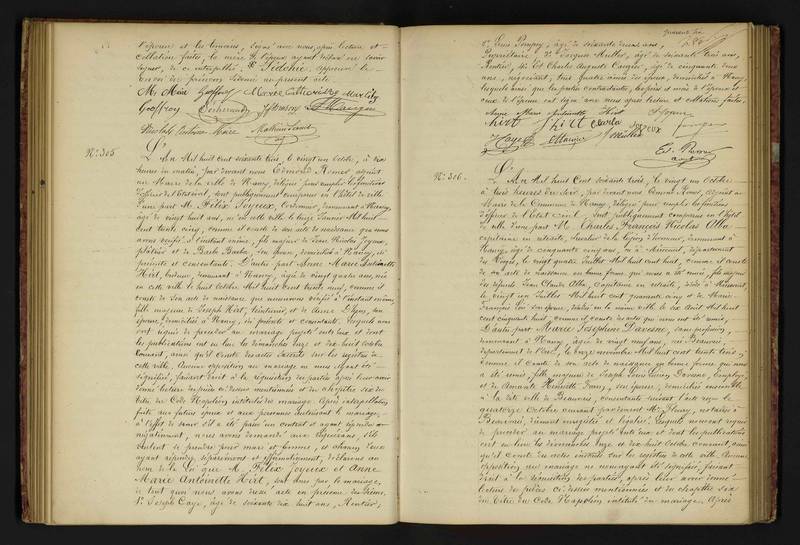 l'épouse et les témoins, signé avec nous, après lecture et
collation faites, la mère de l'épouse ayant déclaré ne savoir
signer, de ce interpellée.
M. Mère Geoffroy Marie Catherine
Geoffroy
Nicolas Antoine Marc
N.° 305
L'An Mil huit cent soixante trois, le vingt un octobre, à dix
heures du matin, par devant nous Edmond Renor adjoint
au Maire de la ville de Nancy, délégué pour remplir les fonctions
d'officier de l'Etat civil, sont publiquement comparus en l'hôtel de ville
d'une part M. Félix Joyeux, Cordonnier, demeurant à Nancy,
âgé de vingt huit ans, né en cette ville le treize Janvier Mil huit
cent trente cinq, comme il conste de son acte de naissance que nous
avons vérifié à l'instant même, fils majeur de Jean Nicolas Joyeux,
plâtrier et de Barbe Barba, son épouse, domiciliés à Nancy, ici
présents et consentants. D'autre part Anne Marie Antoinette
Hirt, brodeuse, demeurant à Nancy, âgée de vingt quatre ans, née
en cette ville le huit Octobre Mil huit cent trente neuf, comme il
conste de son acte de naissance que nous avons vérifié à l'instant même,
fille majeure de Joseph Hirt, teinturier, et de Anne son
épouse, domiciliés à Nancy, ici présents et consentants. Lesquels nous
ont requis de procéder au mariage projeté entr'eux et dont
les publications ont eu lieu les dimanches onze et dix huit octobre
courant, ainsi qu'il conste des actes insérés sur les registres de
cette ville. Aucune opposition au mariage ne nous ayant été
signifiée, faisant droit à la réquisition des parties, après leur avoir
donné lecture des pièces ci dessus mentionnées et du chapitre six du
titre du Code Napoléon intitulé du mariage. Après interpellation
faite aux futurs époux et aux personnes autorisant le mariage,
à l'effet de savoir s'il a été passé un contrat et ayant répondu
négativement, nous avons demandé aux requérants, s'ils
veulent se prendre pour mari et femme, et chacun d'eux
ayant répondu séparément et affirmativement, déclarons au
nom de la Loi que M. Félix Joyeux et Anne
Marie Antoinette Hirt, sont unis par le mariage,
de tout quoi nous avons dressé acte en présence des sieurs,
1.° Joseph Caye, âgé de soixante dix huit ans, Rentier,
2.° Louis Pompey, âgé de soixante deux ans,
Propriétaire 3.° Jacques Muller, âgé de soixante trois ans,
Rentier, 4.° et Charles Auguste, âgé de cinquante deux
ans, négociant, tous quatre amis des époux, domiciliés à Nancy,
lesquels ainsi que les parties contractantes, les père et mère de l'époux et
ceux de l'épouse ont signé avec nous après lecture et collation faites.
Anne Marie Antoinette Hirt f. Joyeux
hirt hirt Barba Joyeux
Caye Muller
N.° 306.
L'An Mil huit Cent soixante trois, le vingt un octobre
à trois heures du soir, par devant nous Edmond Renor, adjoint au
Maire de la Commune de Nancy, délégué pour remplir les fonctions
d'officier de l'Etat civil, sont publiquement comparus en l'hôtel
de ville d'une part M. Charles François Nicolas Alba
capitaine en retraite, chevalier de la Légion d'honneur, demeurant à
Nancy, âgé de cinquante cinq ans, né à Mirecourt, département
des Vosges, le vingt quatre Juillet Mil huit cent huit, comme il conste
de son acte de naissance en bonne forme qui nous a été remis, fils majeur
des défunts Jean Claude Alba, capitaine en retraite, décédé à Mirecourt,
le vingt un Juillet Mil huit cent quarante cinq et de Marie
Françoise son épouse, décédée en la même ville le dix Août Mil huit
cent cinquante huit, comme il conste des actes qui nous ont été remis,
D'autre part Marie Joséphine Davesne, sans profession,
demeurant à Nancy, âgée de vingt neuf ans, née Beauvais,
département de l'Oise, le treize novembre Mil huit cent trente trois,
comme il conste de son acte de naissance en bonne forme qui nous
a été remis, fille majeure de Joseph Louis Davesne, employé,
et de Amante Henriette, son épouse, domiciliés ensemble
à la dite ville de Beauvais, consentants suivant l'acte reçu le
quatorze Octobre courant par devant M.e Fleury, notaire à
Beauvais, dûment enregistré et légalisé. Lesquels nous ont requis
de procéder au mariage projeté entr'eux et dont les publications
ont eu lieu les dimanches onze et dix huit Octobre courant, ainsi
qu'il conste des actes insérés sur les registres de cette ville. Aucune
opposition au mariage ne nous ayant été signifiée, faisant
droit à la réquisition des parties, après leur avoir donné
lecture des pièces ci dessus mentionnées et du chapitre six
du titre du Code Napoléon intitulé du mariage. Après